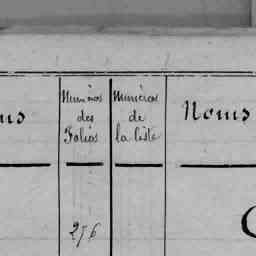 Numéros
des
Folios
Numéros
de
la liste
Noms
276